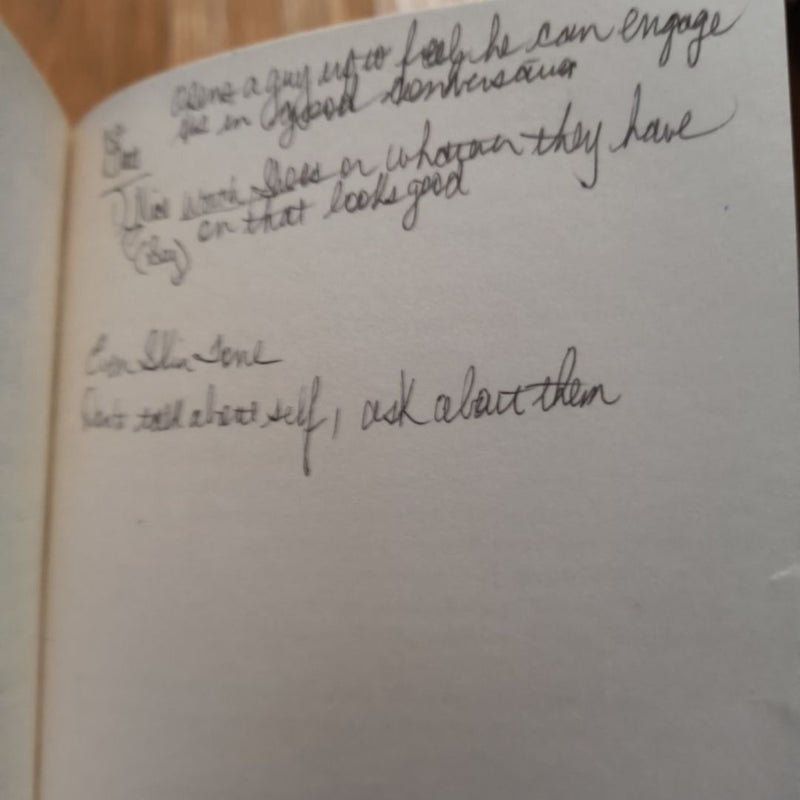 opens a guy up to feel he can engage
in good conversation
Nice watch shoes or whatever they have
on that looks good
(Buy)
Even Skin Tone
Don't talk about self, ask about them